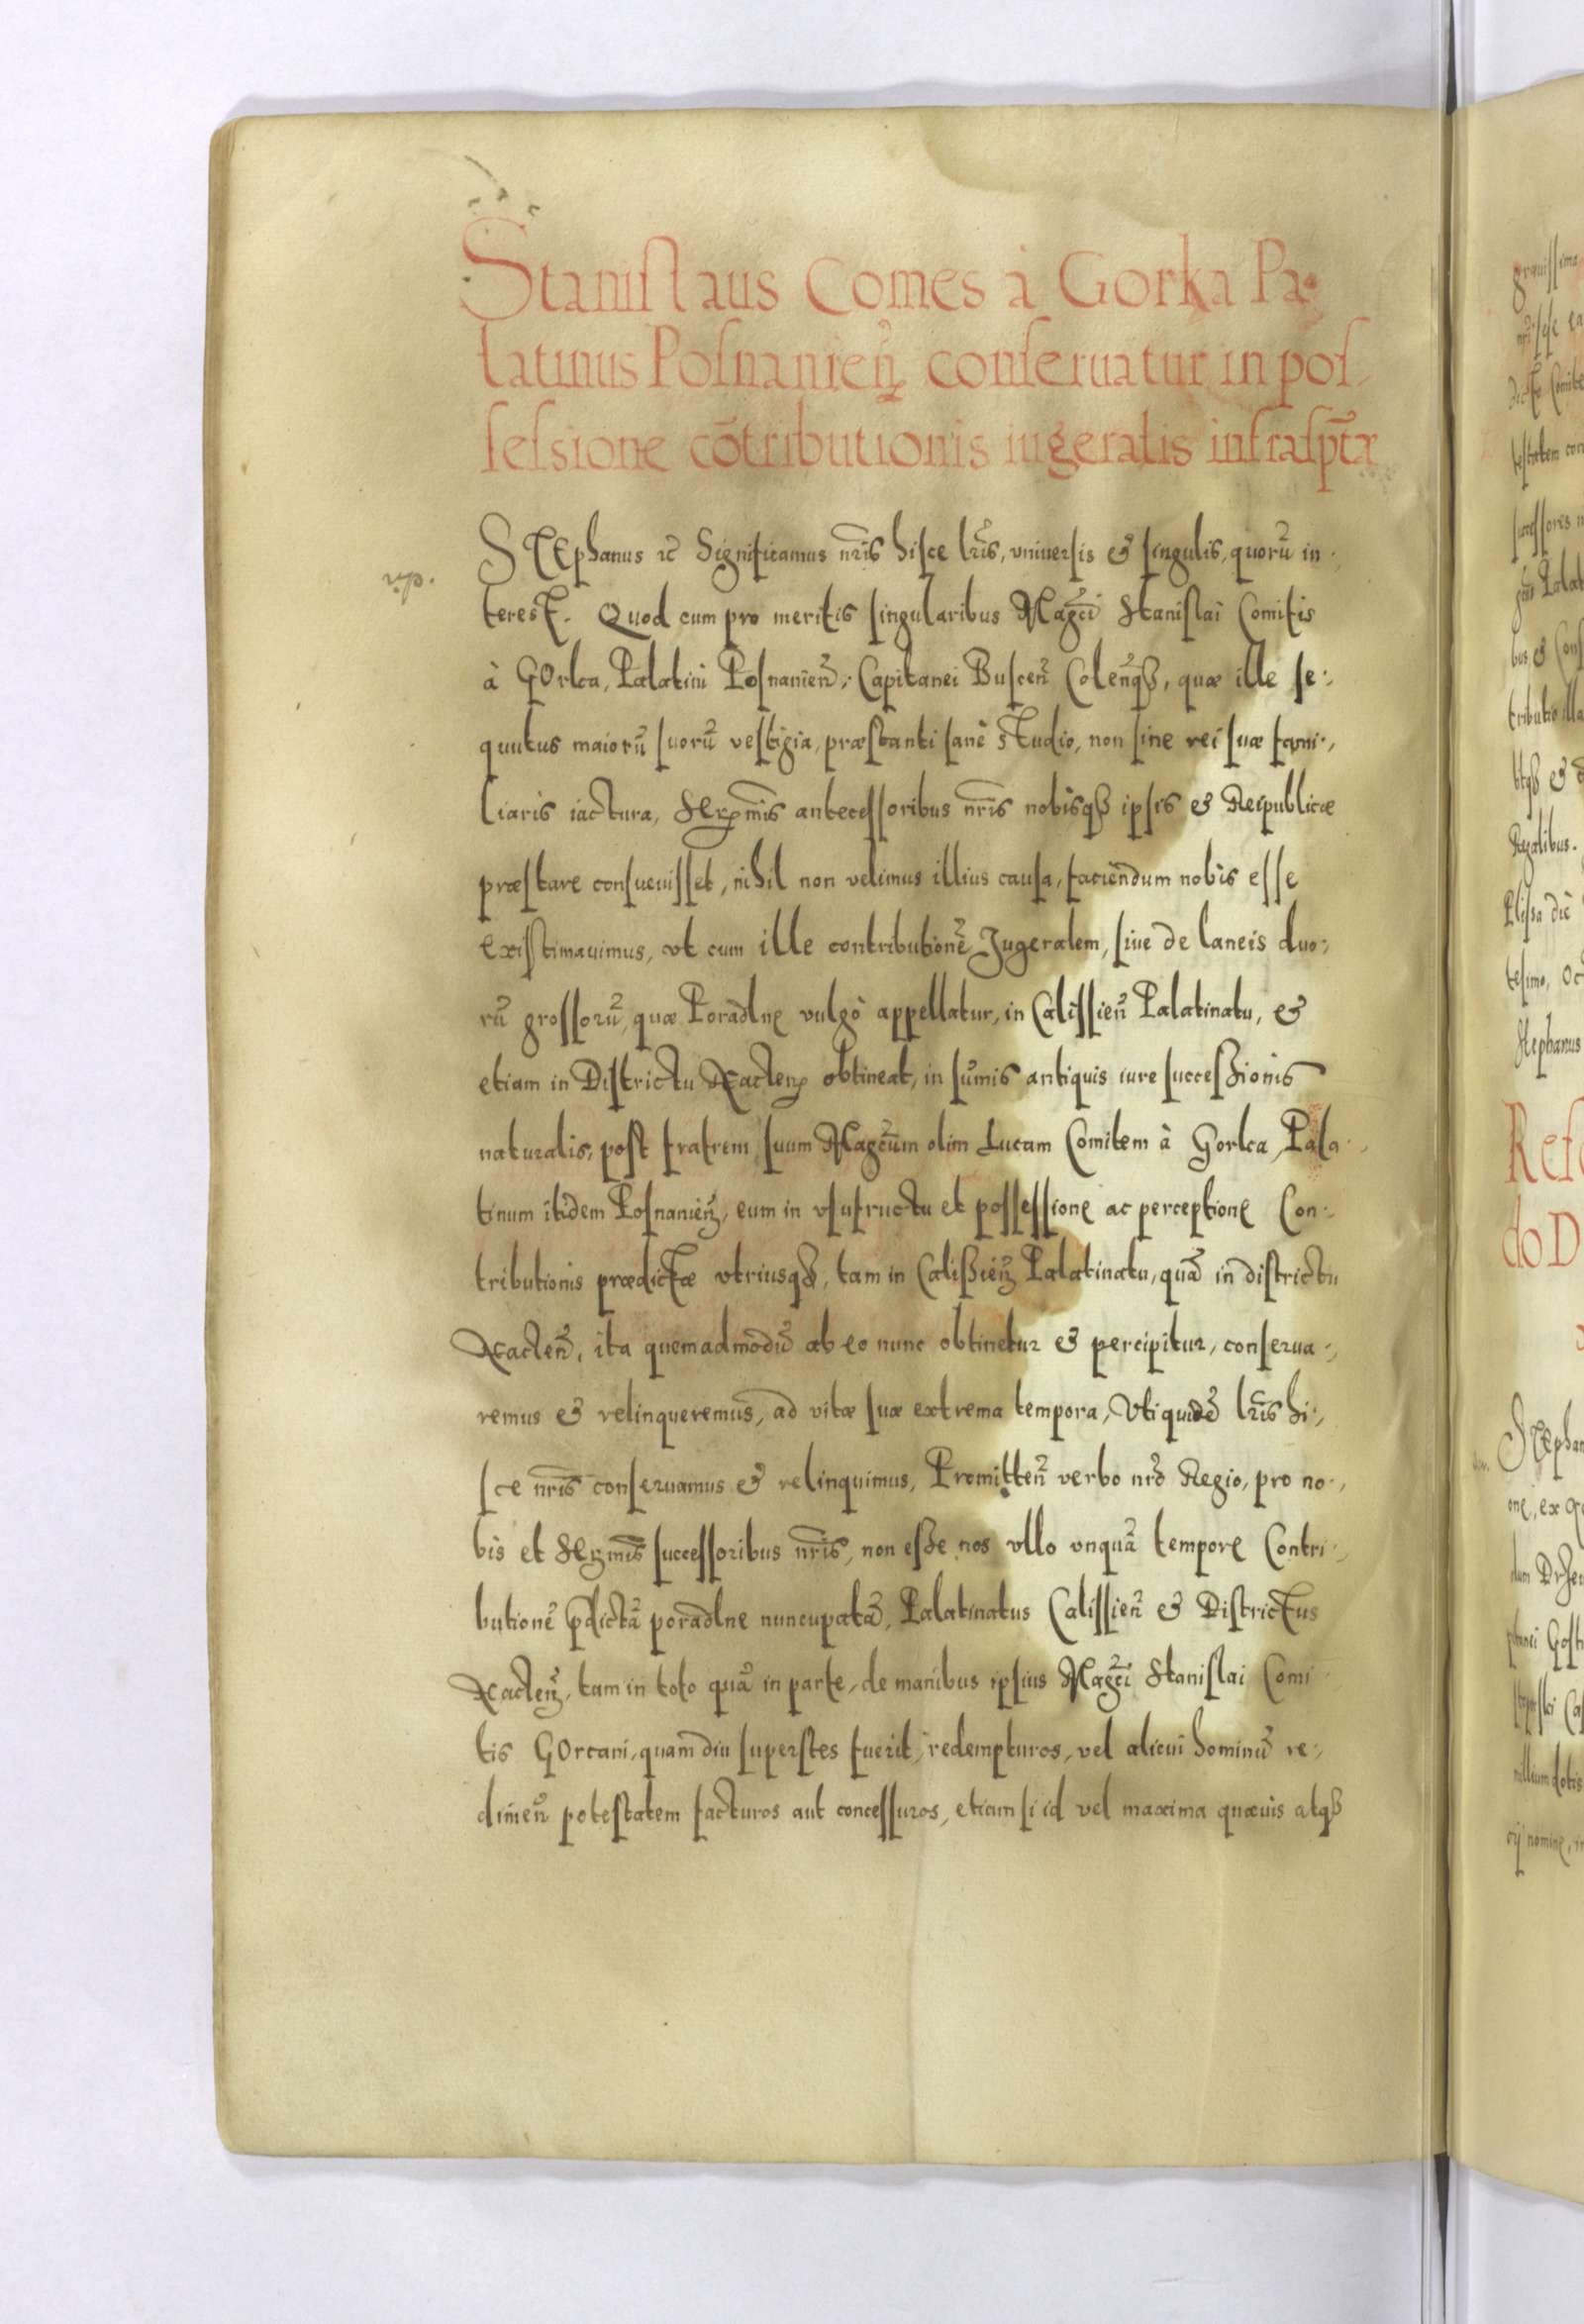 Stanislaus Comes à Gorka Pa-
latinus Posnanien̄ conseruatur in pos-
sessione cōtributionis iugeralis infrasptæ
STEphanus rc̄ Significamus nr̄is hisce lr̄is, vniuersis & singulis, quorū in-
terest. Quod cum pro meritis singularibus Magc̄i Stanislai Comitis
à GOrka, Palatini Posnanien̄, Capitanei Buscen̄ Colen̄qꝫ, quæ ille se-
quutus maiorū suorū vestigia, præstanti sanè studio, non sine rei suæ fami-
liaris iactura, Serm̄is antecessoribus nr̄is nobisqꝫ ipsis & Reipublicæ
præstare consueuisset, nihil non velimus illius causa, faciendum nobis esse
existimauimus, vt cum ille contributionē Iugeralem, siue de laneis duo-
rū grossorū, quæ Poradlne vulgò appellatur, in Calissien̄ Palatinatu, &
etiam in Districtu Naclen̄ obtineat, in sum̄is antiquis iure successionis
naturalis, post fratrem suum Magcūm olim Lucam Comitem à Gorka, Pala-
tinum itidem Posnanien̄, eum in vsufructu et possessione ac perceptione Con-
tributionis prædictæ vtriusqꝫ, tam in Calissien̄ Palatinatu, quā in districtu
Naclen̄, ita quemadmodū ab eo nunc obtinetur & percipitur, conserua-
remus & relinqueremus, ad vitæ suæ extrema tempora, Vti quidē lr̄is hi-
sce nr̄is conseruamus & relinquimus, Promitten̄ verbo nr̄o Regio, pro no-
bis et Serm̄is successoribus nr̄is, non esse nos vllo vnquā tempore Contri-
butionē p̄dictā poradlne nuncupatā, Palatinatus Calissien̄ & Districtus
Naclen̄, tam in toto quā in parte, de manibus ipsius Magc̄i Stanislai Comi
tis GOrcani, quamdiu superstes fuerit, redempturos, vel alicui hominū re-
dimen̄ potestatem facturos aut concessuros, etiam si id vel maxima quæuis atqꝫ